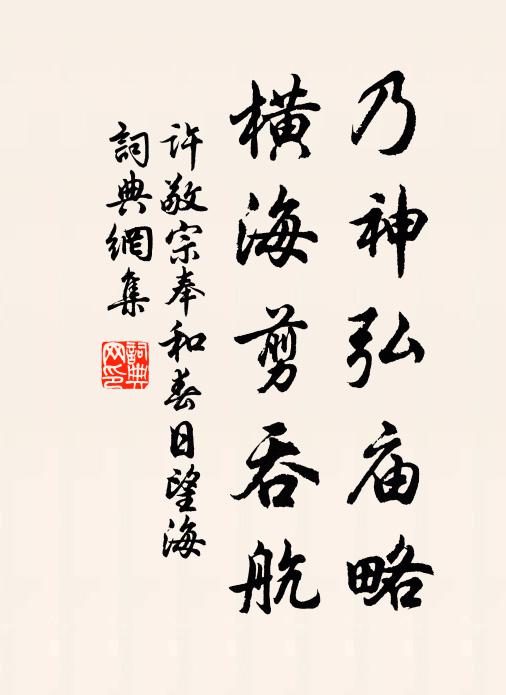 乃神弘庙略
横海剪吞航
许敬宗奉和春日望海
词典網集
詞典
网印